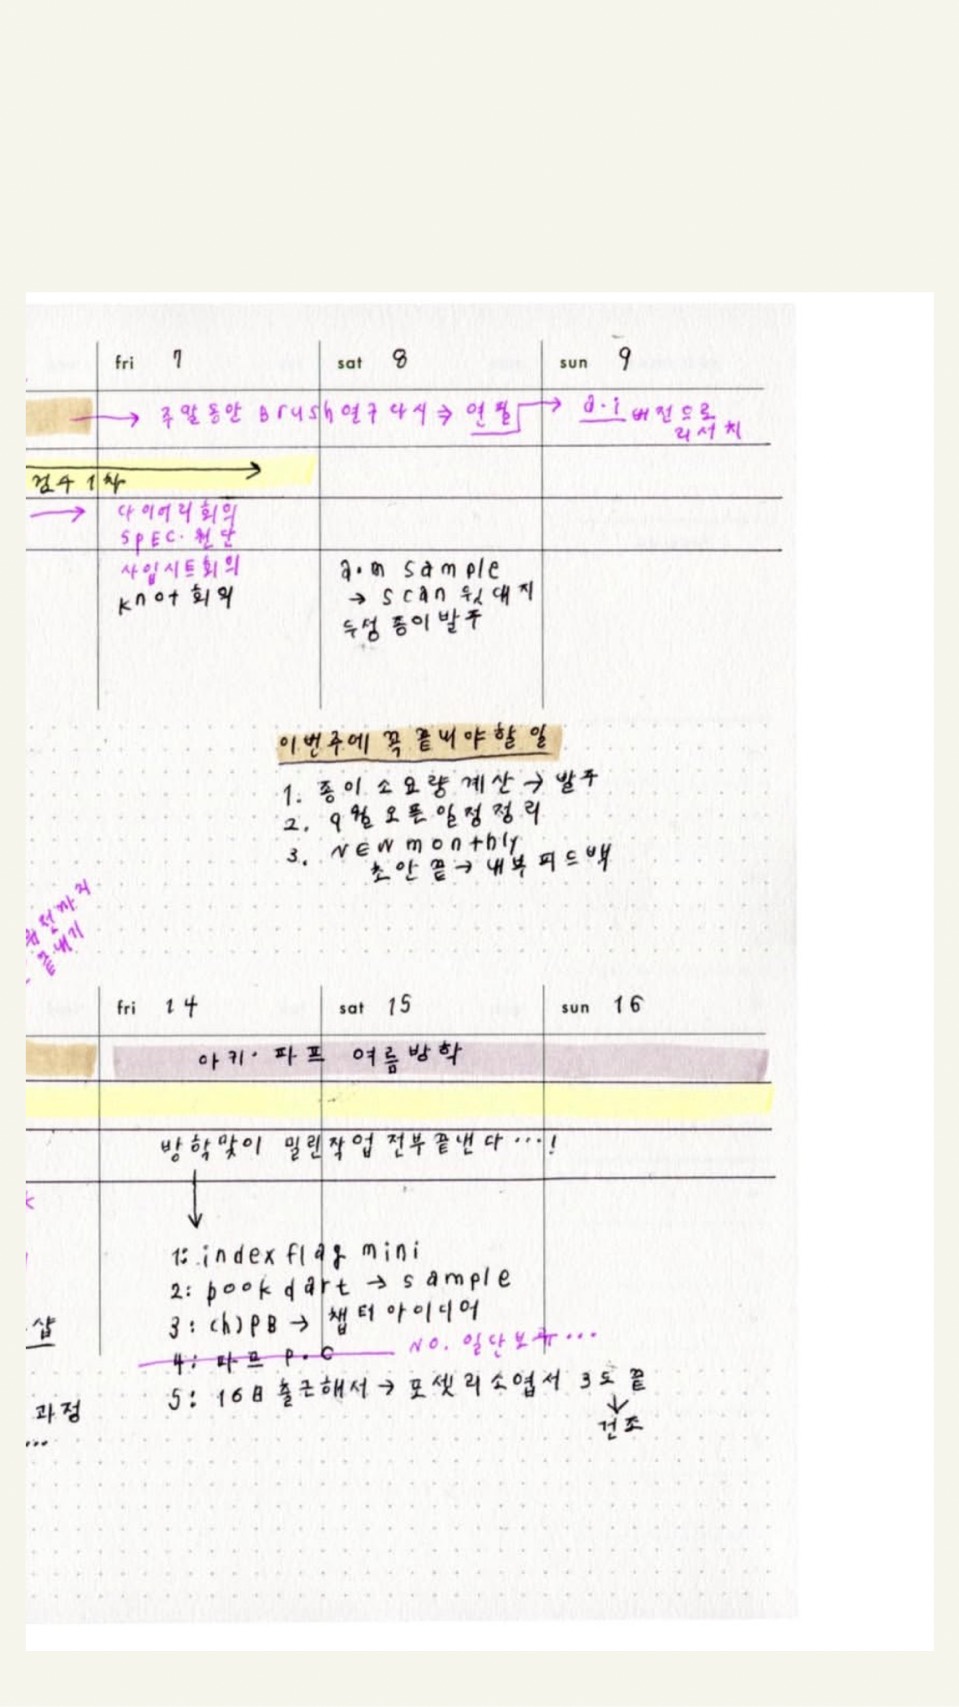 fri 7 sat 8 sun 9
주말동안 Brush연구다시 ⇒ 연필 → a.i 버전으로
리서치
검수 1차
다이어리회의
SPEC. 원단
사입시트회의
knot 회의
a.m sample
→ scan 원대지
두성 종이발주
이번주에 꼭 끝내야할 일
1. 종이 소요량 계산 → 발주
2. 9월 오픈일정정리
3. NEW monthly
초안 끝 → 내부 피드백
까지
끝내기
fri 14 sat 15 sun 16
아키. 파프 여름방학
방학맞이 밀린작업 전부끝낸다...!
↓
1: index flag mini
2: book dart → sample
3: (h)PB → 챕터아이디어
4: 파프 P.C NO. 일단보류...
5: 16日 출근해서 → 포셋리소엽서 3도 끝
↓
건조
샵
과정
...